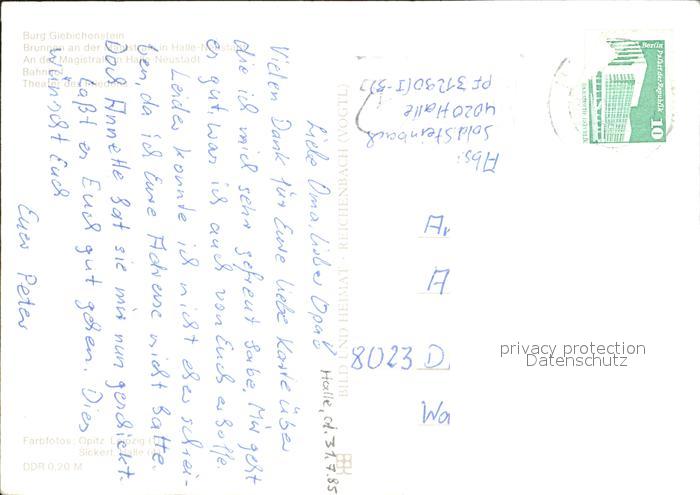 Burg Giebichenstein
Brunnen an der Magistrale in Halle-Neustadt
An der Magistrale in Halle-Neustadt
Bahnhof
Theater des Friedens
Halle, d. 31.7.85
Liebe Oma, lieber Opa!
Vielen Dank für Eure liebe Karte über
die ich mich sehr gefreut habe. Mir geht
es gut, was ich auch von Euch erhoffe.
Leider konnte ich nicht eher schrei-
ben, da ich Eure Adresse nicht hatte.
Doch Annette hat sie mir nun geschickt.
Laßt es Euch gut gehen. Dies
wünscht Euch
Euer Peter
Farbfotos: Opitz, Leipzig
Sickert, Halle
DDR 0,20 M
BILD UND HEIMAT · REICHENBACH (VOGTL)
Abs:
Sold. Steinbach
4020 Halle
PF 31290
Berlin, Palast der Republik
10
A
8023 D
privacy protection
Datenschutz